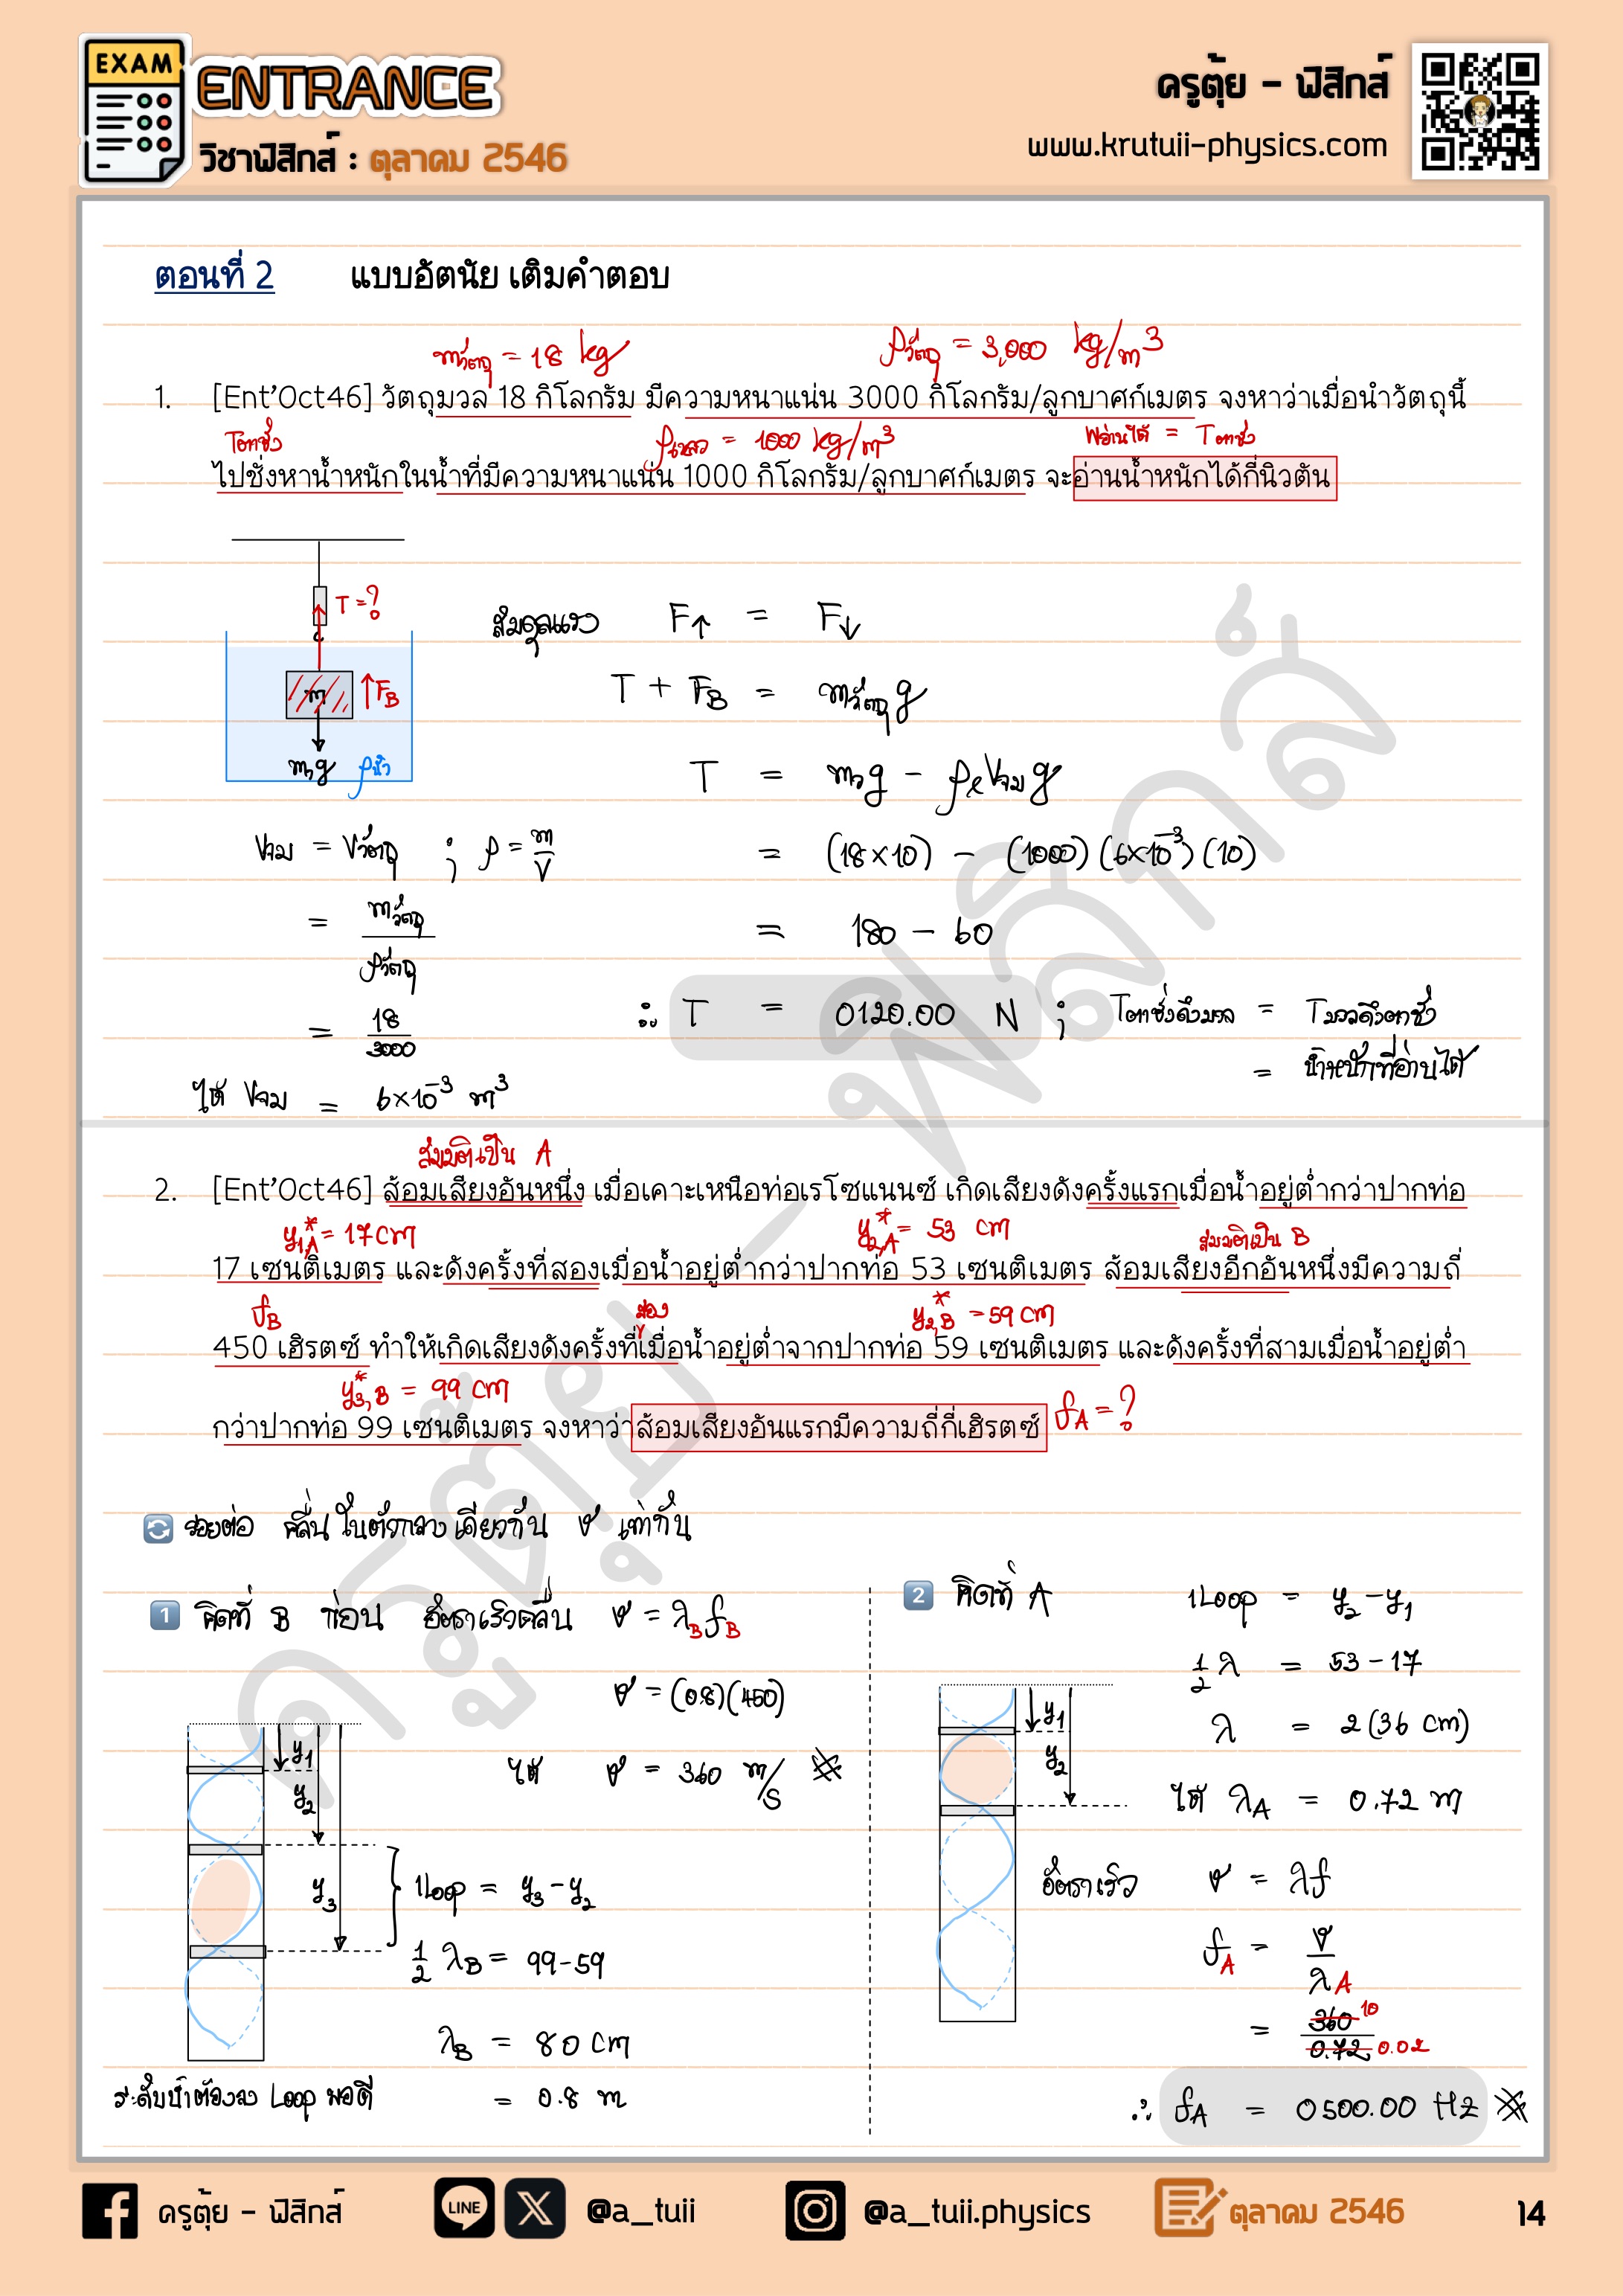 EXAM
ENTRANCE
วิชาฟิสิกส์ : ตุลาคม 2546
ครูตุ้ย - ฟิสิกส์
www.krutuii-physics.com
ตอนที่ 2 แบบอัตนัย เติมคำตอบ
mวัตถุ = 18 kg ρวัตถุ = 3,000 kg/m3
1. [Ent'Oct46] วัตถุมวล 18 กิโลกรัม มีความหนาแน่น 3000 กิโลกรัม/ลูกบาศก์เมตร จงหาว่าเมื่อนำวัตถุนี้
Tตาชั่ง ρเหลว = 1000 kg/m3 พอ่านได้ = Tตาชั่ง
ไปชั่งหาน้ำหนักในน้ำที่มีความหนาแน่น 1000 กิโลกรัม/ลูกบาศก์เมตร จะอ่านน้ำหนักได้กี่นิวตัน
T = ?
m ↑FB
mวg ρน้ำ
สมดุลแรง F↑ = F↓
T + FB = mวัตถุg
T = mวg - ρℓVจมg
Vจม = Vวัตถุ ; ρ = m/V = (18×10) - (1000)(6×10⁻³)(10)
= mวัตถุ/ρวัตถุ = 180 - 60
= 18/3000 ∴ T = 0120.00 N ; Tตาชั่งดึงมวล = Tมวลดึงตาชั่ง
ได้ Vจม = 6×10⁻³ m³ = น้ำหนักที่อ่านได้
สมมติเป็น A
2. [Ent'Oct46] ส้อมเสียงอันหนึ่ง เมื่อเคาะเหนือท่อเรโซแนนซ์ เกิดเสียงดังครั้งแรกเมื่อน้ำอยู่ต่ำกว่าปากท่อ
y1,A* = 17 cm y2,A* = 53 cm สมมติเป็น B
17 เซนติเมตร และดังครั้งที่สองเมื่อน้ำอยู่ต่ำกว่าปากท่อ 53 เซนติเมตร ส้อมเสียงอีกอันหนึ่งมีความถี่
fB สอง y2,B* = 59 cm
450 เฮิรตซ์ ทำให้เกิดเสียงดังครั้งที่เมื่อน้ำอยู่ต่ำจากปากท่อ 59 เซนติเมตร และดังครั้งที่สามเมื่อน้ำอยู่ต่ำ
y3,B* = 99 cm
กว่าปากท่อ 99 เซนติเมตร จงหาว่าส้อมเสียงอันแรกมีความถี่กี่เฮิรตซ์ fA = ?
รอยต่อ คลื่นในตัวกลางเดียวกัน v เท่ากัน
1 คิดที่ B ก่อน อัตราเร็วคลื่น v = λBfB
v = (0.8)(450)
ได้ v = 360 m/s
y1
y2
y3
1Loop = y3 - y2
½ λB = 99-59
λB = 80 cm
= 0.8 m
ระดับน้ำต้องลง Loop พอดี
2 คิดที่ A 1Loop = y2 - y1
½ λ = 53 - 17
λ = 2(36 cm)
ได้ λA = 0.72 m
y1
y2
อัตราเร็ว v = λf
fA = v/λA
= 360/0.72 10 0.02
∴ fA = 0500.00 Hz
ครูตุ้ย - ฟิสิกส์
ครูตุ้ย - ฟิสิกส์
LINE
@a_tuii
@a_tuii.physics
ตุลาคม 2546
14